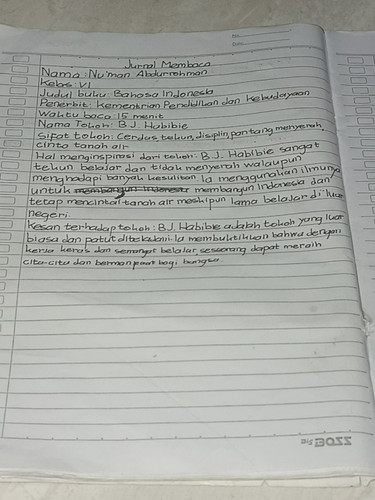 No.
Date.
Jurnal Membaca
Nama: Nu'man Abdurrohman
Kelas VI
Judul buku: Bahasa Indonesia
Penerbit: Kementrian Pendidikan dan Kebudayaan
Waktu baca 15 menit
Nama Tokoh: B.J Habibie
Sifat tokoh: Cerdas, tekun, disiplin, pantang menyerah,
cinta tanah air
Hal menginspirasi dari tokoh: B.J. Habibie sangat
tekun belajar dan tidak menyerah walaupun
menghadapi banyak kesulitan. Ia menggunakan ilmunya
untuk membangun Indonesia dan
tetap mencintai tanah air meskipun lama belajar di luar
negeri.
Kesan terhadap tokoh: B.J. Habibie adalah tokoh yang luar
biasa dan patut diteladani. Ia membuktikan bahwa dengan
kerja keras dan semangat belajar, seseorang dapat meraih
cita-cita dan bermanfaat bagi bangsa.
BIG BOSS